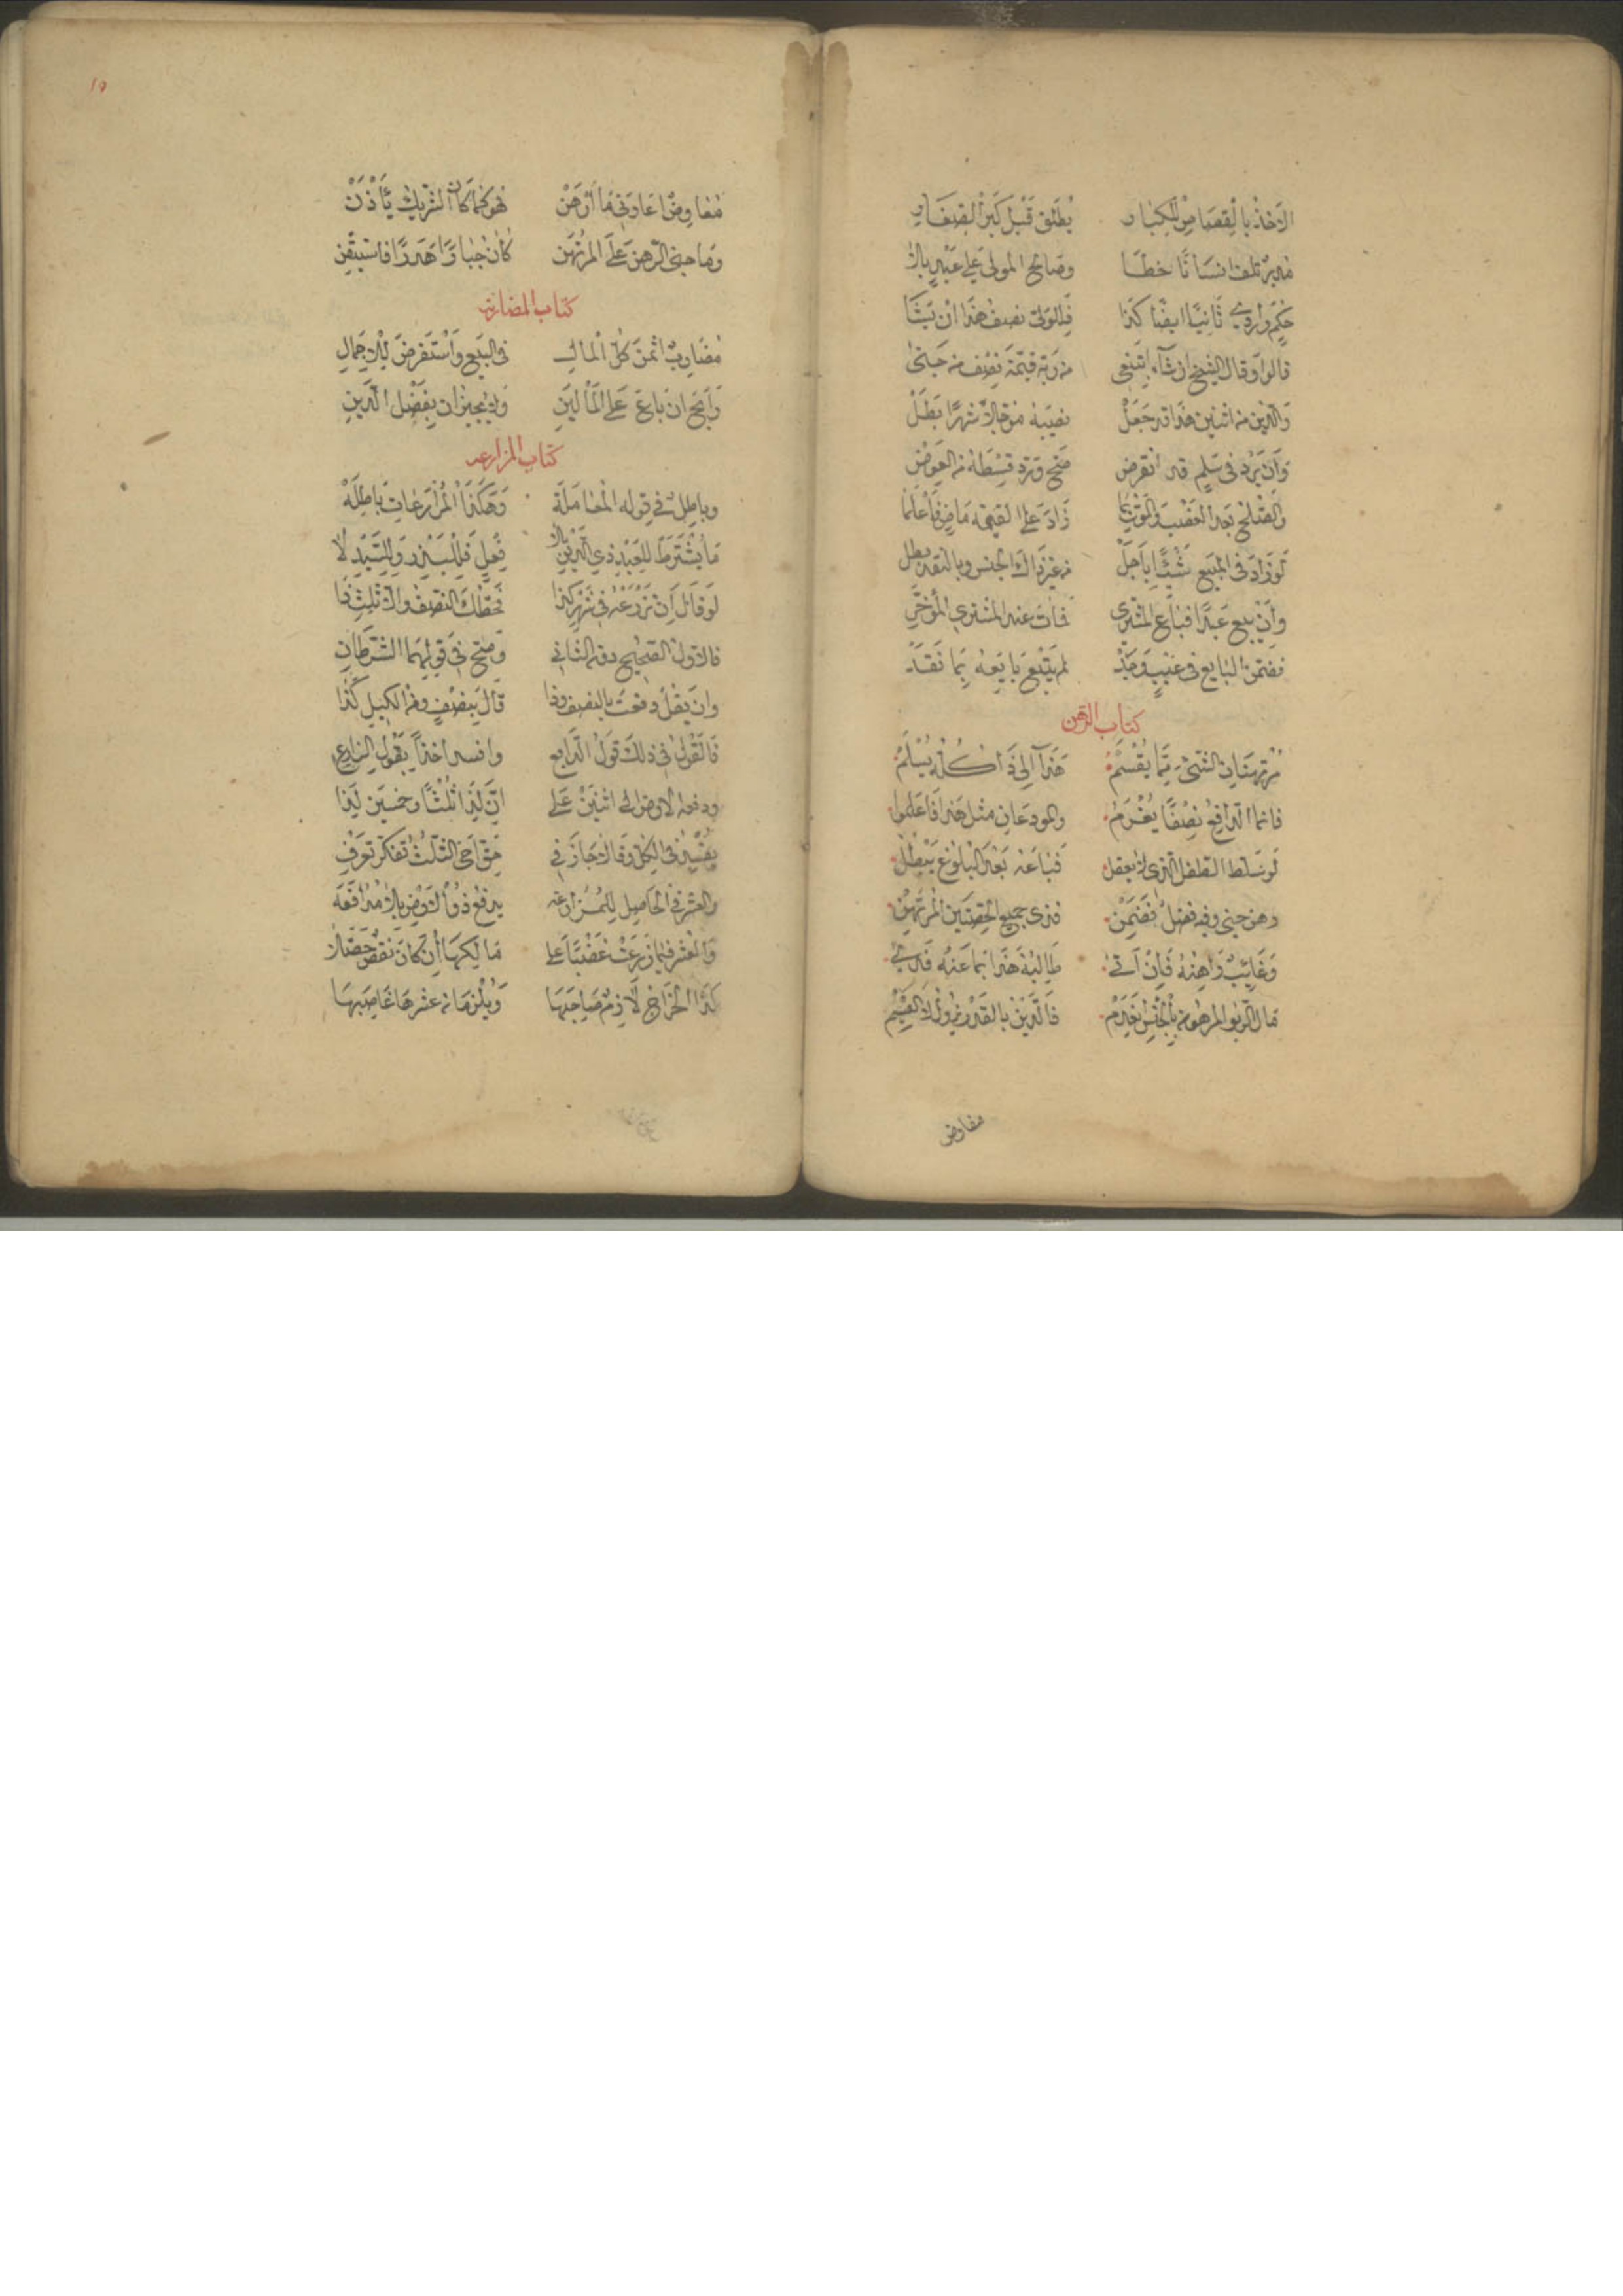 الاخذ بالقصاص للكبار يطلق قبل كبر الصغار
مدبر تلف انسانا خطا وصالح المولى على عبد بلا
حكم واردى ثانيا ايضا كذا فللولى نصف هذا ان يشا
قالوا وقال الشيخ ان شاء اتبع من ربه قيمة نصف من جنى
والدين من اثنين هذا قد جعل نصيبه مؤجلا شهرا بطل
وان يرد في سلم قد انقرض صح ورد قسطه من العوض
والصلح بعد الغصب والتوى بما زاد على القيمة ماض فاعلما
لو زاد في المبيع شيئا باجل من غير ذاك الجنس وبالنقد بطل
وان يبيع عبدا فباع المشترى فمات عند المشترى المؤخر
فضمن البايع في عيب وجد لم يتبع بايعه بما نقد
كتاب الرهن
مرتهنان الشيء مما يقسم هذا الى ذا كله يسلم
فانما الدافع نصفا يغرم والمودعان مثل هذا فاعلموا
لو سلط الطفل الذى لا يعقل فباعه بعد البلوغ يبطل
رهن جنى وفيه فضل فضمن فدى جميع الحصتين المرتهن
وغايب راهنه فان اتى طالبه هذا بما عنه فدى
مفاوض
١٥
مفاوض اعاونى ما ارهن فهو كما كان الشريك ياذن
وما جنى الرهن على المرتهن كان جبارا هدرا فاستيقن
كتاب المضاربة
مضارب اثمن كل المال في البيع واستقرض للاجمال
رابح ان باع على المالين ولا يجيزان بفضل الدين
كتاب المزارعة
وباطل في قوله المعاملة وهكذا المزارعات باطله
ما يشترط للعبد ذي الدين بلا فعل فللبذر وللسيد لا
لو قال ان تزرعه في شهر كذا فحظك النصف والا ثلث ذا
فالاول الصحيح دون الثاني وصح في قولهما الشرطان
وان يقل دفعت بالنصف وذا قال بنصف ومن الكيل كذا
فالقول في ذلك قول الدافع وافسد اخذا بقول الزارع
ودفعه الارض الى اثنين على ان لذا ثلثا وخمسين لذا
يفسد في الكل وقالا جاز في حق اخى الثلث تفكر تعرف
والعشر في الحاصل للمزارعه يدفع ذو الارض بلا مدافعه
والعشر فيما زرعت غصبا على مالكها ان كان نقص حصلا
كذا الخراج لازم صاحبها ويلزمان عشرها غاصبها